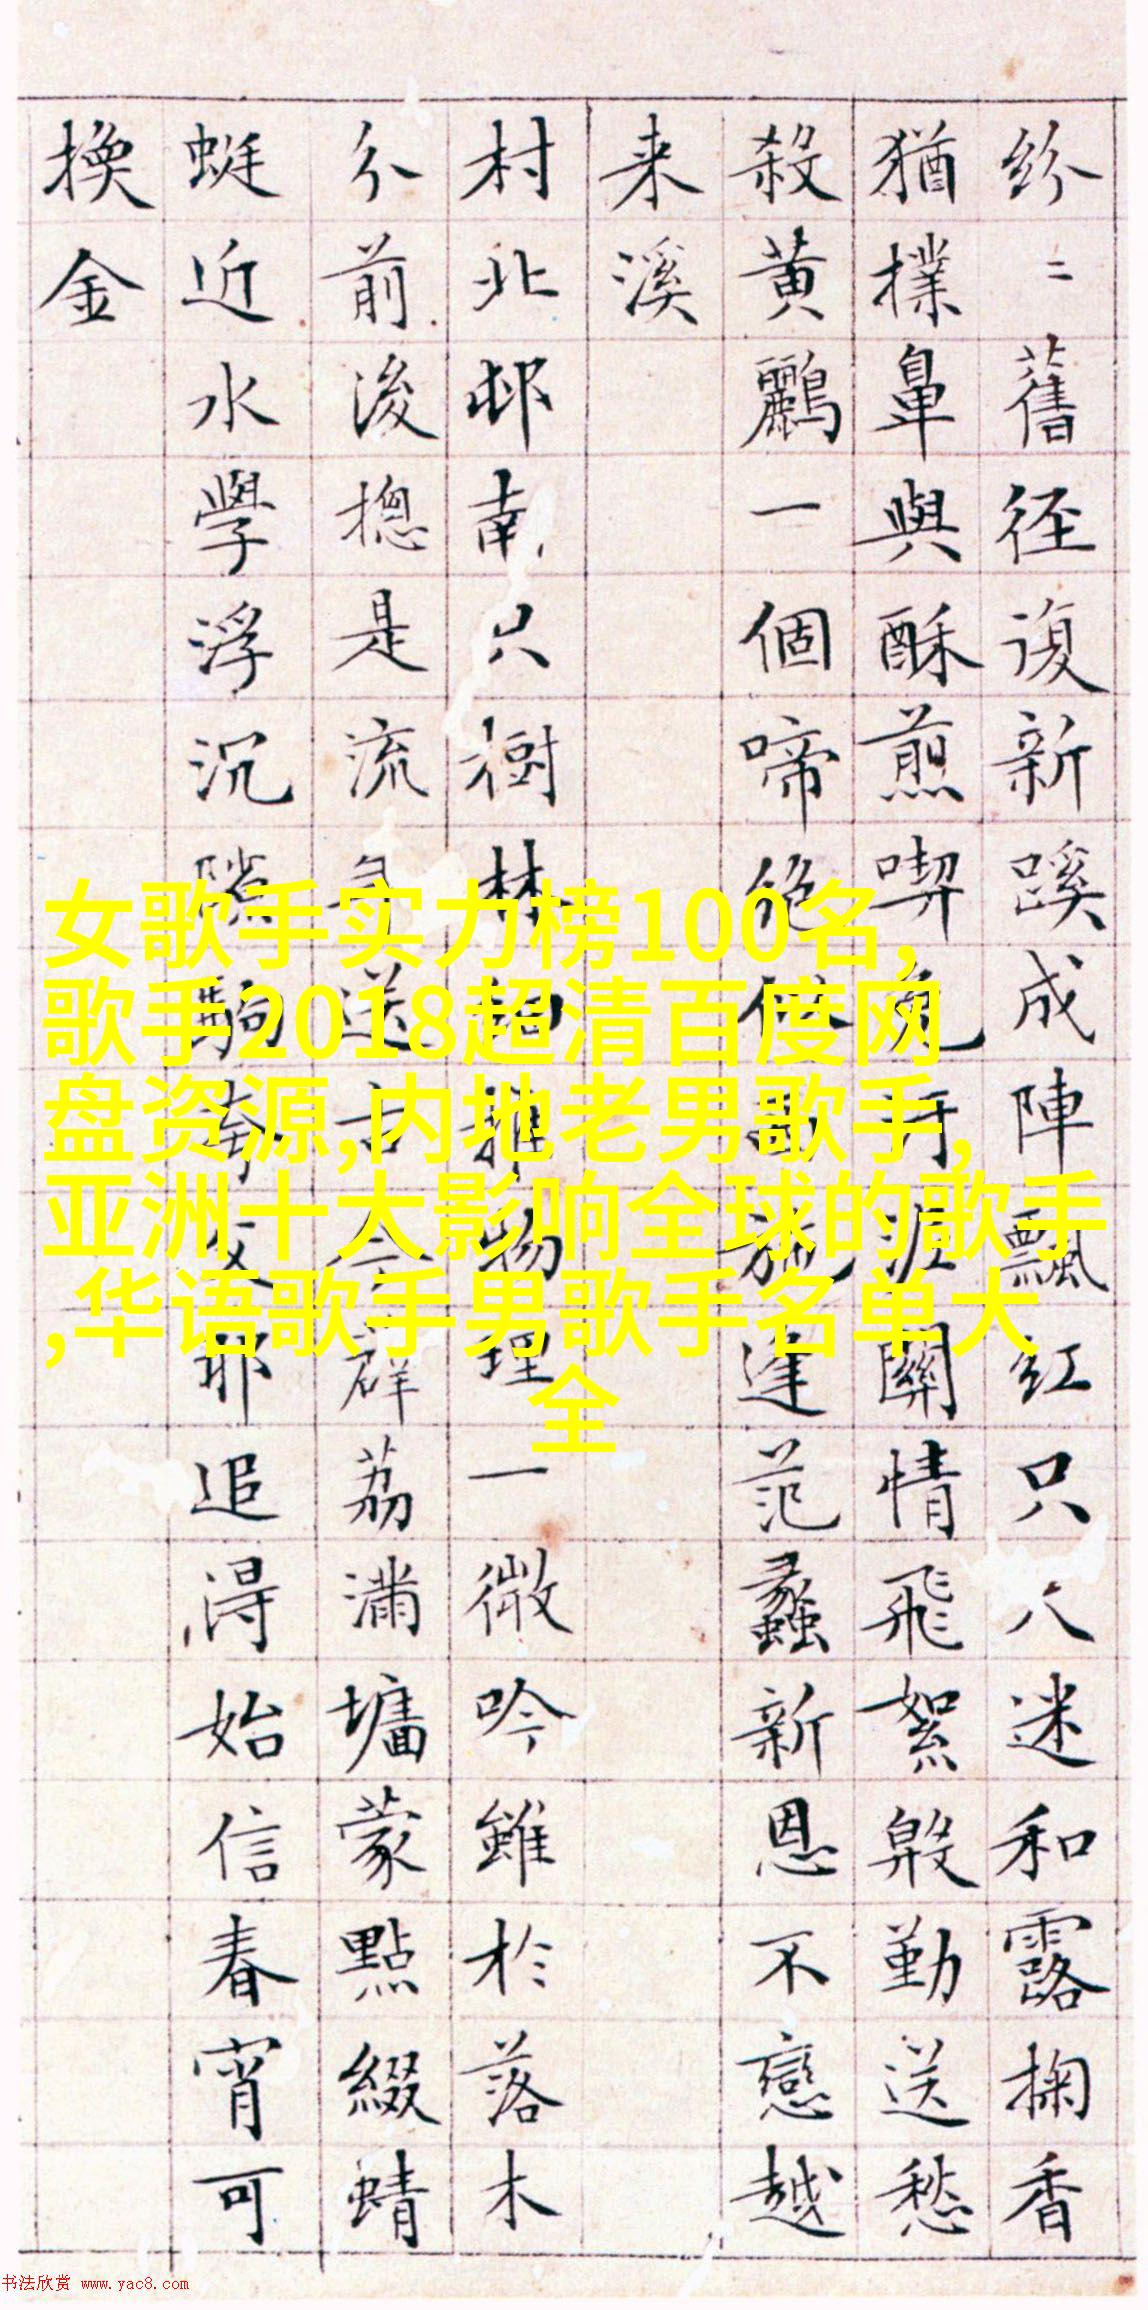 紛〻舊径復新蹊成陣飄紅只迷和露掬香
猶撲鼻與酥煎喫免汙泥關情飛絮殷勤送愁
殺黃鸝一個啼絶似西施逢范蠡新恩不戀越
来溪
村北邨南只樹林推物理一微吟雖於落木
分前後揔是流年送古今群荔滿墉蒙點綴蜻
蜓近水學浮沉隙駒夸父那追得始信春宵可
換金
女歌手实力榜100名,
歌手2018超清百度网
盘资源,内地老男歌手,
亚洲十大影响全球的歌手
,华语歌手男歌手名单大
全
书法欣赏 www.yac8.com